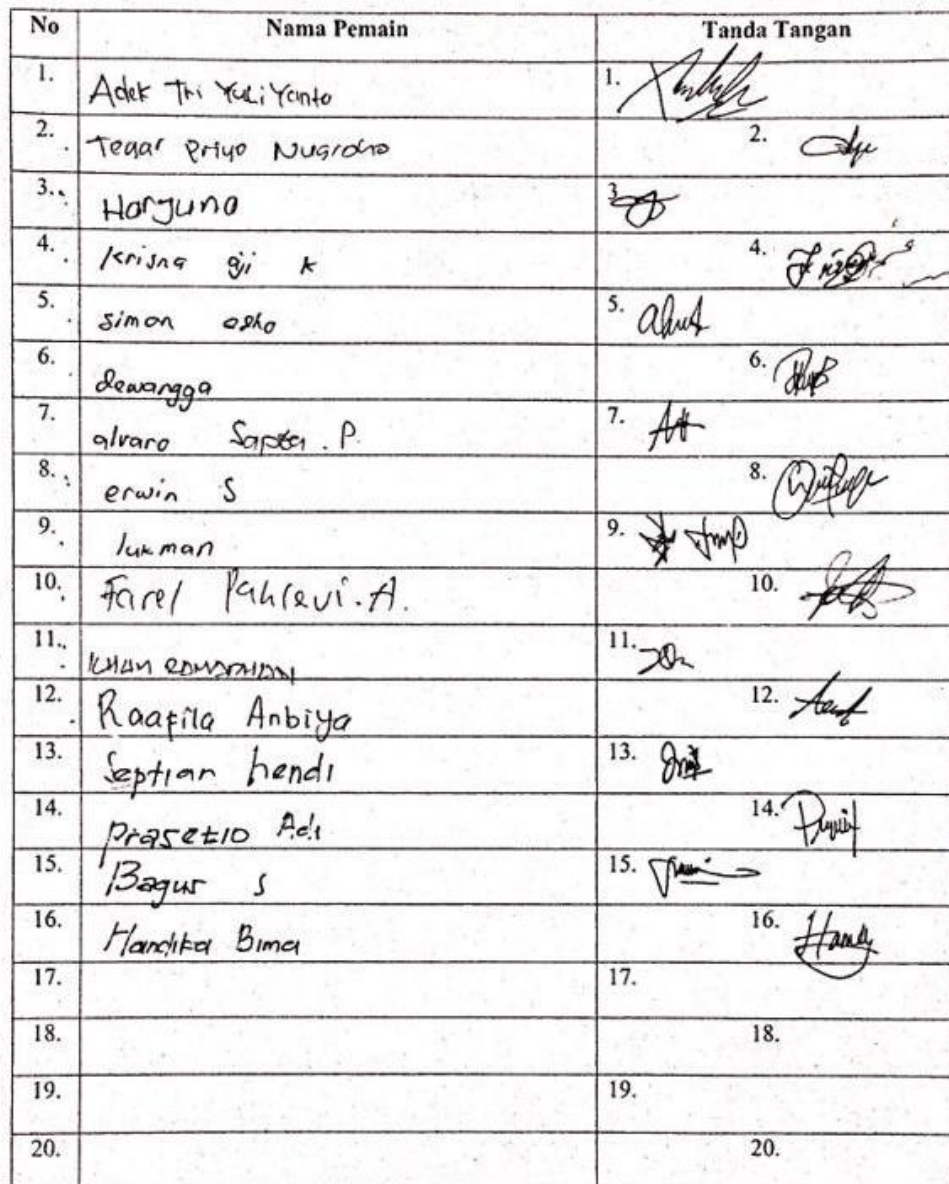 No Nama Pemain Tanda Tangan
1. Adek Tri Yuli Yanto 1.
2. Tegar Priyo Nugroho 2.
3. Harjuno 3.
4. Krisna aji K 4.
5. simon 5.
6. dewangga 6.
7. alvaro Sapta . P. 7.
8. erwin S 8.
9. lukman 9.
10. Farel Pahlevi. A. 10.
11. 11.
12. Raafila Anbiya 12.
13. Septian hendi 13.
14. Prasetio Adi 14.
15. Bagus S 15.
16. Handika Bima 16.
17. 17.
18. 18.
19. 19.
20. 20.